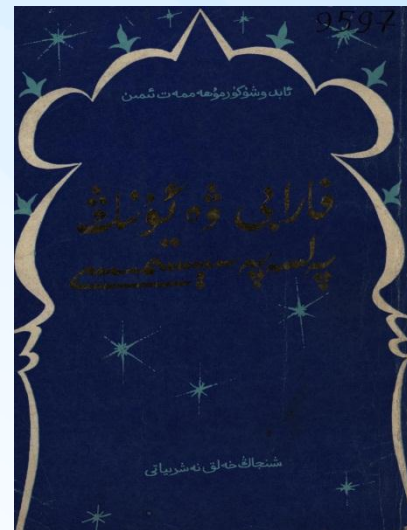 9597
ئابدۇشۈكۈر مۇھەممەت ئىمىن
فارابى ۋە ئۇنىڭ
پەلسەپە سىستېمىسى
شىنجاڭ خەلق نەشرىياتى